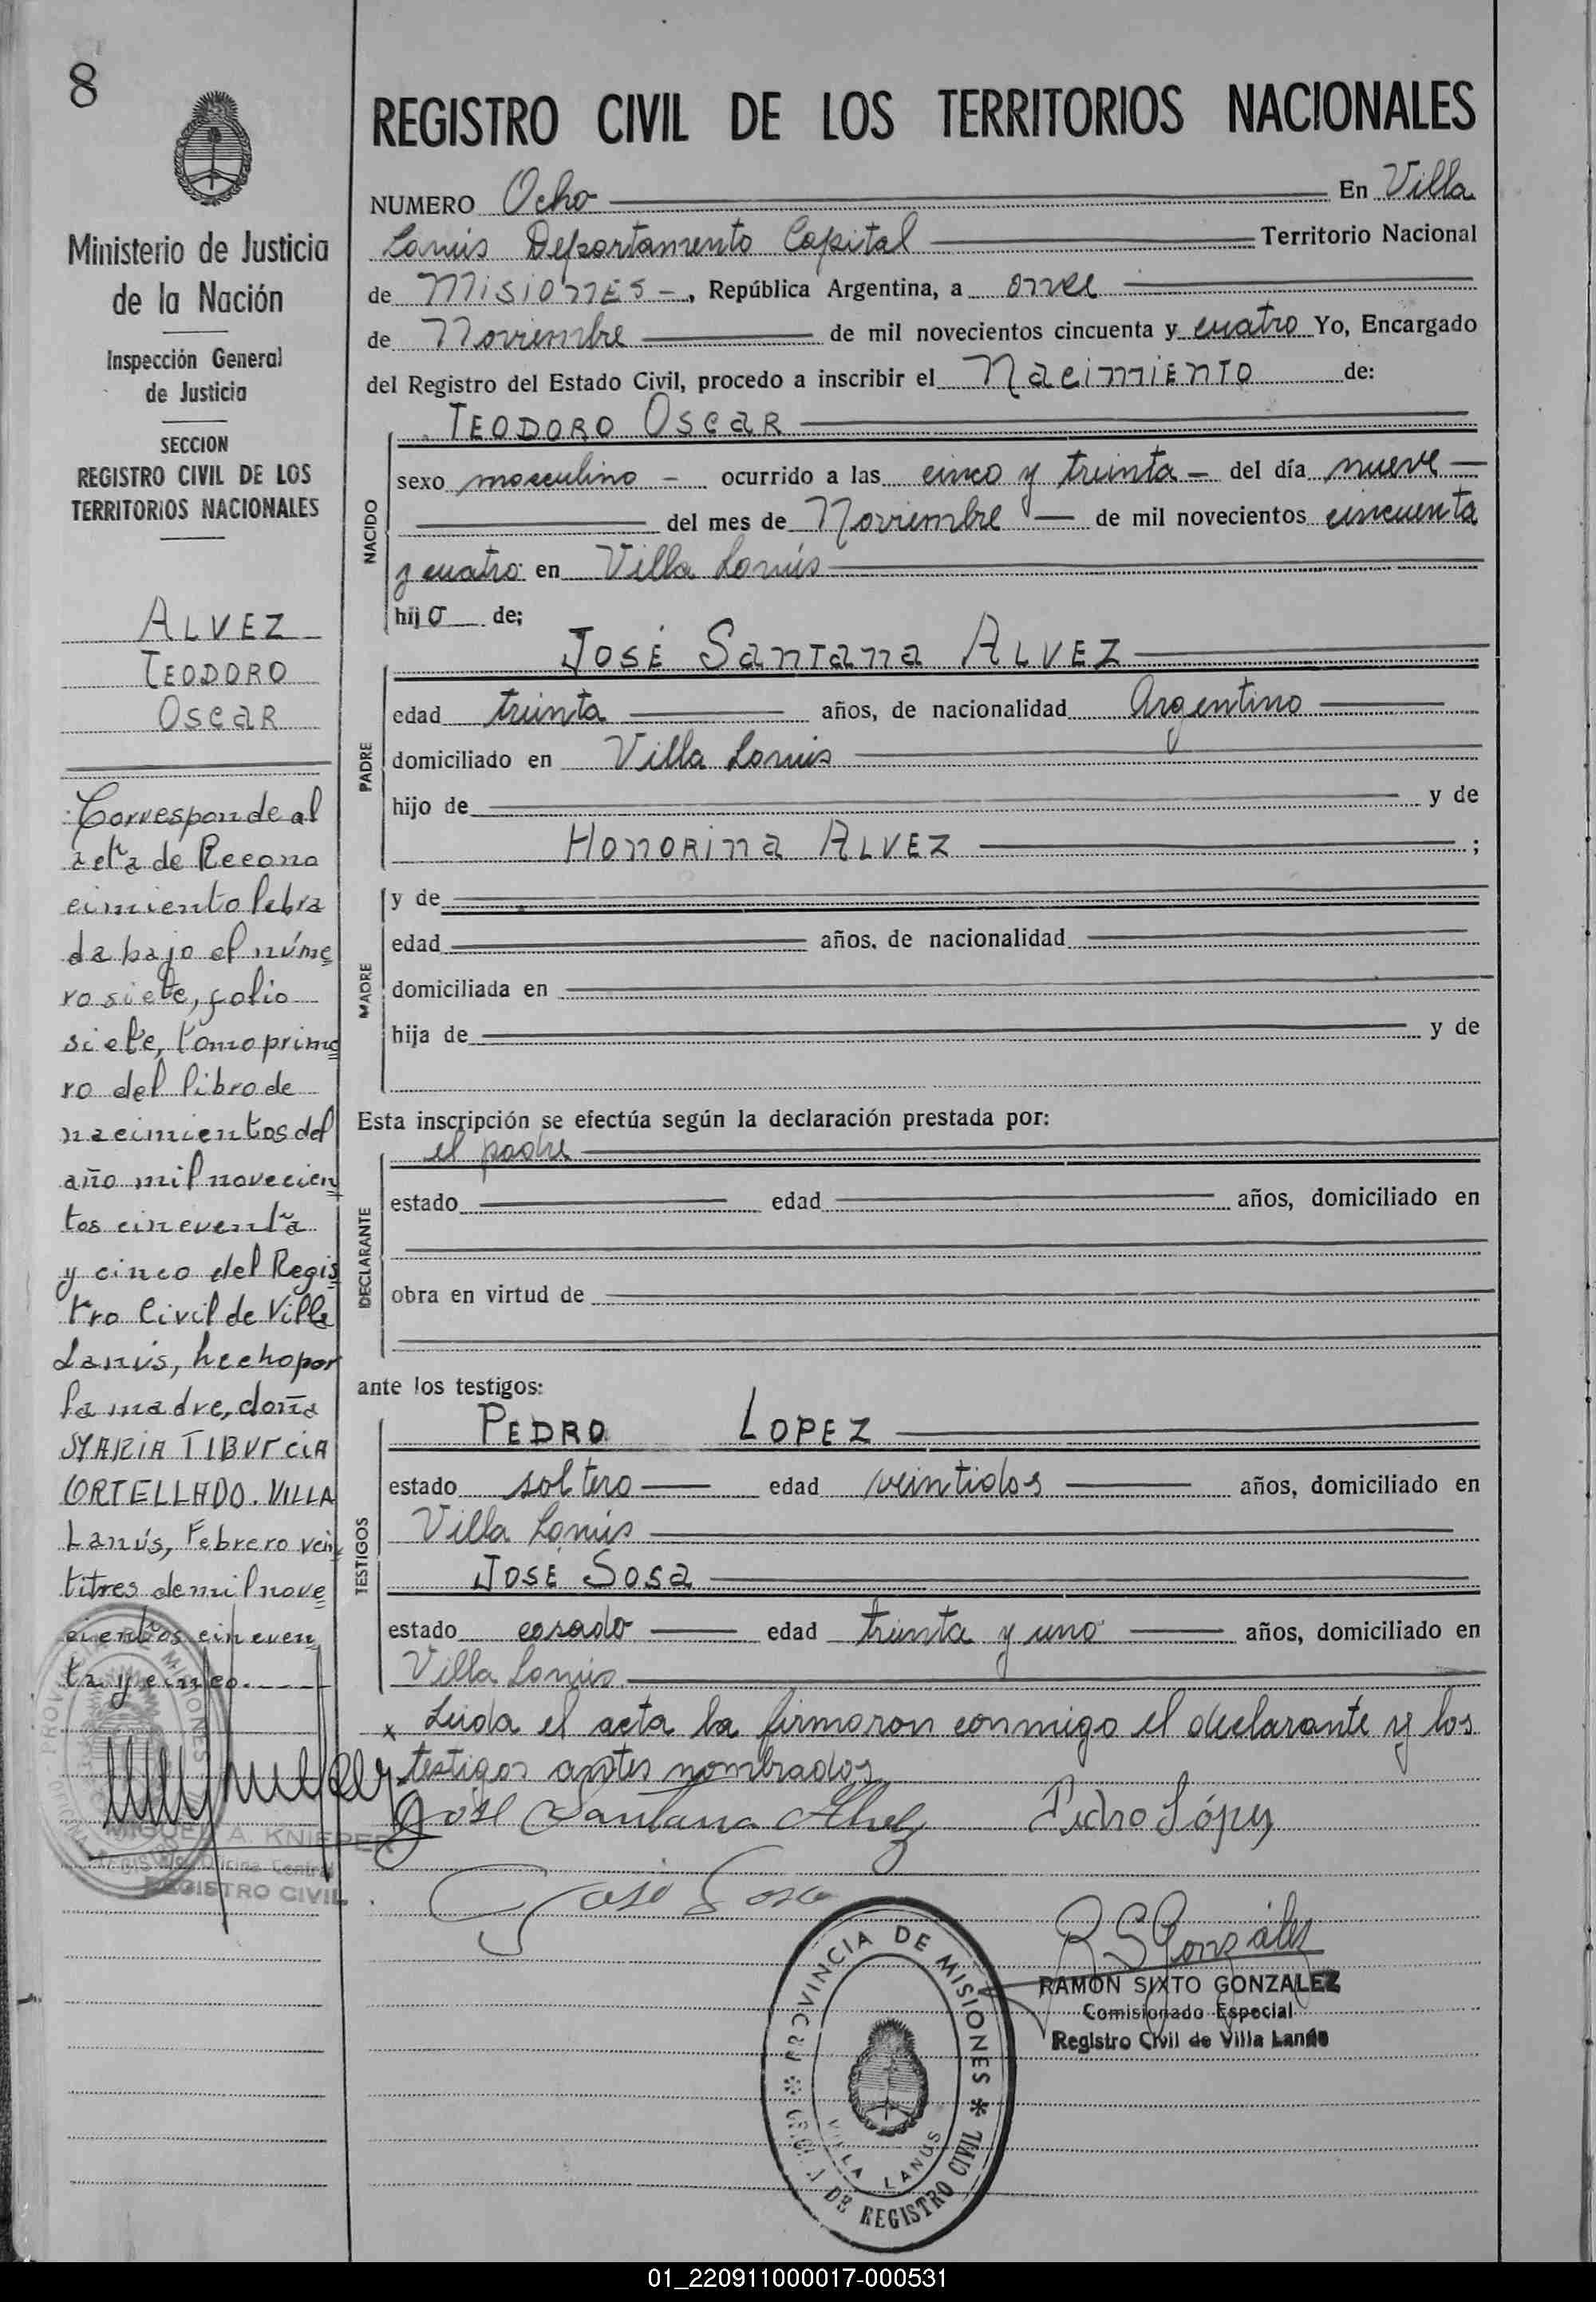 8
Ministerio de Justicia
de la Nación
Inspección General
de Justicia
SECCION
REGISTRO CIVIL DE LOS
TERRITORIOS NACIONALES
ALVEZ
TEODORO
OSCAR
Corresponde al
acta de Recono
cimiento labra
da bajo el núme
ro siete, folio
siete, tomo prime
ro del libro de
nacimientos del
año mil novecien
tos cincuenta
y cinco del Regis
tro Civil de Villa
Lanús, hecho por
la madre, doña
MARIA TIBURCIA
CORTELLADO. VILLA
Lanús, Febrero vein
titres de mil nove
cientos cincuen
ta y cinco.
MIGUEL A. KNIEPER
Oficina Central
REGISTRO CIVIL
REGISTRO CIVIL DE LOS TERRITORIOS NACIONALES
NUMERO Ocho En Villa
Lanús Departamento Capital Territorio Nacional
de Misiones -, República Argentina, a once
de Noviembre de mil novecientos cincuenta y cuatro Yo, Encargado
del Registro del Estado Civil, procedo a inscribir el Nacimiento de:
TEODORO OSCAR
NACIDO
sexo masculino - ocurrido a las cinco y treinta - del día nueve -
del mes de Noviembre - de mil novecientos cincuenta
y cuatro en Villa Lanús
hijo de;
PADRE
JOSÉ SANTANA ALVEZ
edad treinta años, de nacionalidad Argentino
domiciliado en Villa Lanús
hijo de y de
HONORINA ALVEZ ;
MADRE
y de
edad años, de nacionalidad
domiciliada en
hija de y de
Esta inscripción se efectúa según la declaración prestada por:
DECLARANTE
el padre
estado edad años, domiciliado en
obra en virtud de
ante los testigos:
TESTIGOS
PEDRO LOPEZ
estado soltero edad veintidos años, domiciliado en
Villa Lanús
JOSÉ SOSA
estado casado edad treinta y uno años, domiciliado en
Villa Lanús
x Leida el acta la firmaron conmigo el declarante y los
testigos antes nombrados
José Santana Alvez Pedro López
José Sosa
R S González
RAMON SIXTO GONZALEZ
Comisionado Especial
Registro Civil de Villa Lanús
PROVINCIA DE MISIONES
DE REGISTRO CIVIL
VILLA LANUS
01_220911000017-000531